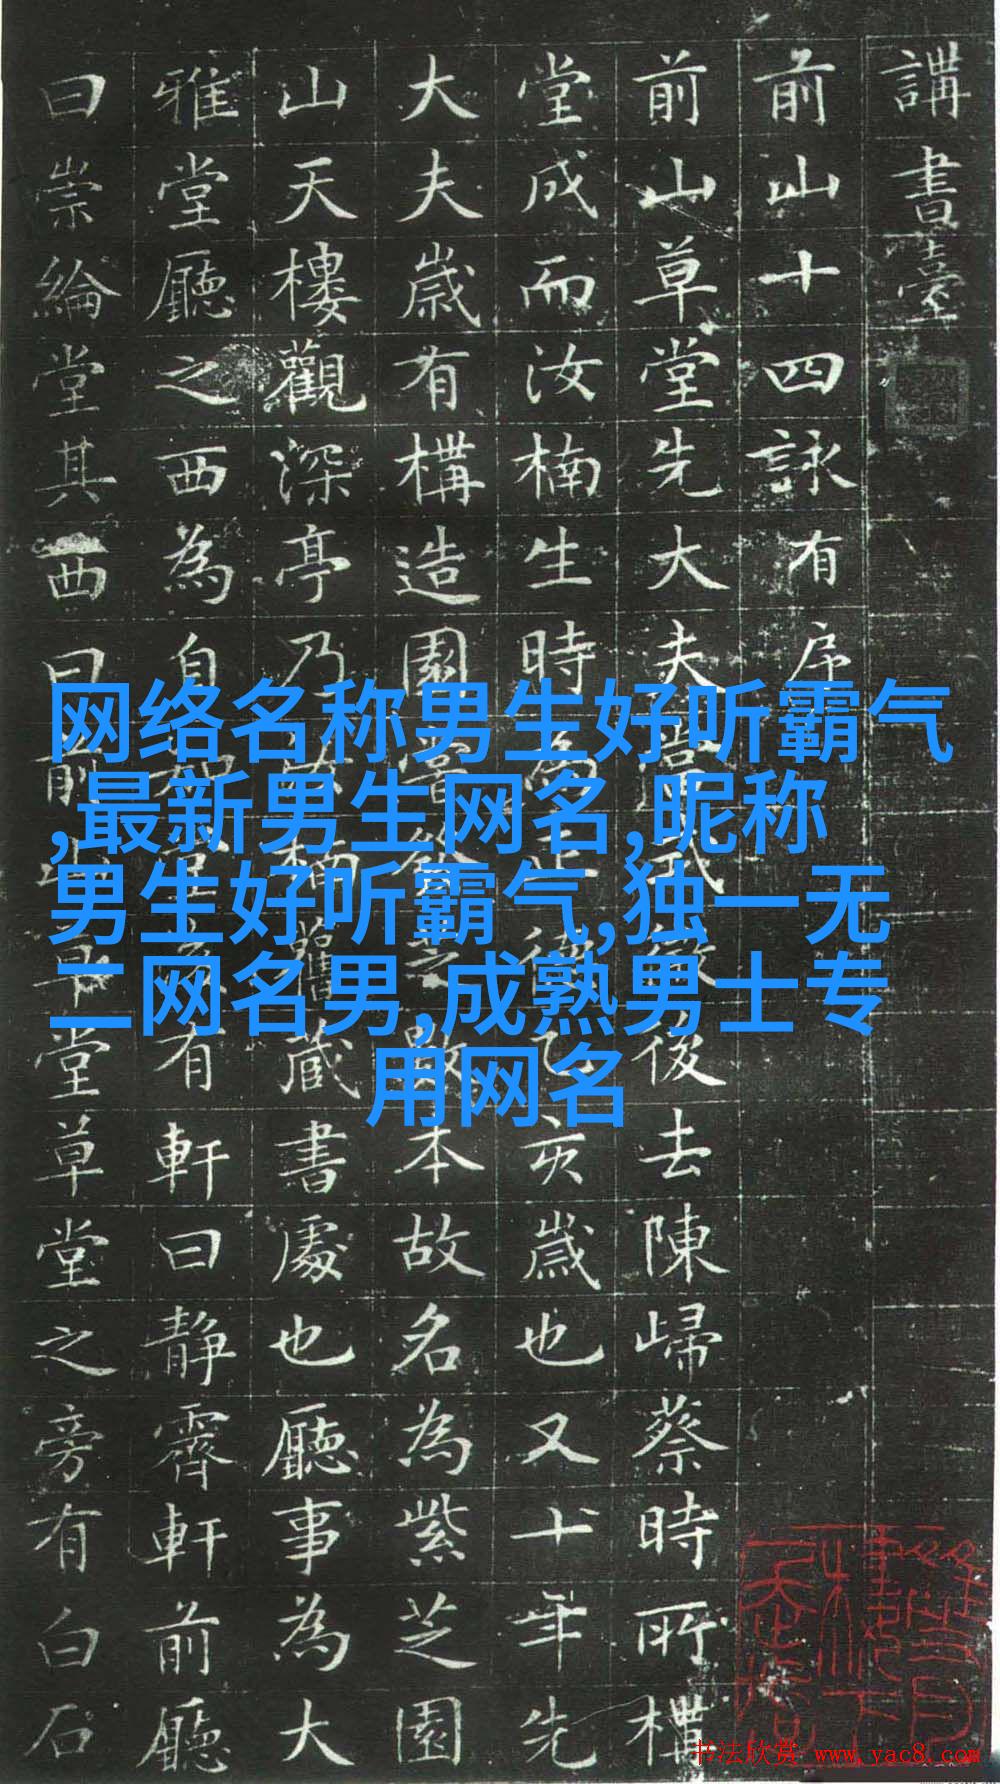 講書臺
前山十四詠有序
前山草堂先大夫後去陳歸蔡時所構
堂成而汝楠生時為正德乙亥歲也又十年先
大夫歲有構造園芝本故名為紫芝園
山天樓觀深亭乃汝楠舊藏書處也廳事為大
雅堂廳之西為自有軒曰靜霽軒前廳
曰崇綸堂其西曰前山草堂草堂之旁有白石
网络名称男生好听霸气
,最新男生网名,昵称
男生好听霸气,独一无
二网名男,成熟男士专
用网名
书法欣赏 www.yac8.com